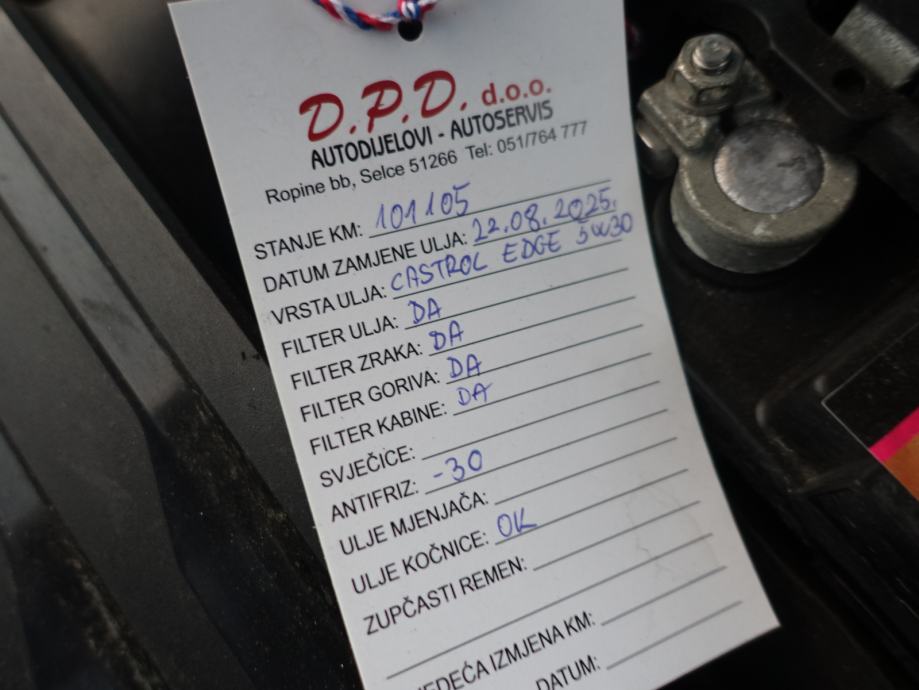 D.P.D. d.o.o.
AUTODIJELOVI - AUTOSERVIS
Ropine bb, Selce 51266 Tel: 051/764 777
STANJE KM: 101105
DATUM ZAMJENE ULJA: 22.08.2025.
VRSTA ULJA: CASTROL EDGE 5W30
FILTER ULJA: DA
FILTER ZRAKA: DA
FILTER GORIVA: DA
FILTER KABINE: DA
SVJEČICE:
ANTIFRIZ: -30
ULJE MJENJAČA:
ULJE KOČNICE: OK
ZUPČASTI REMEN:
IZMJENA KM:
DATUM: